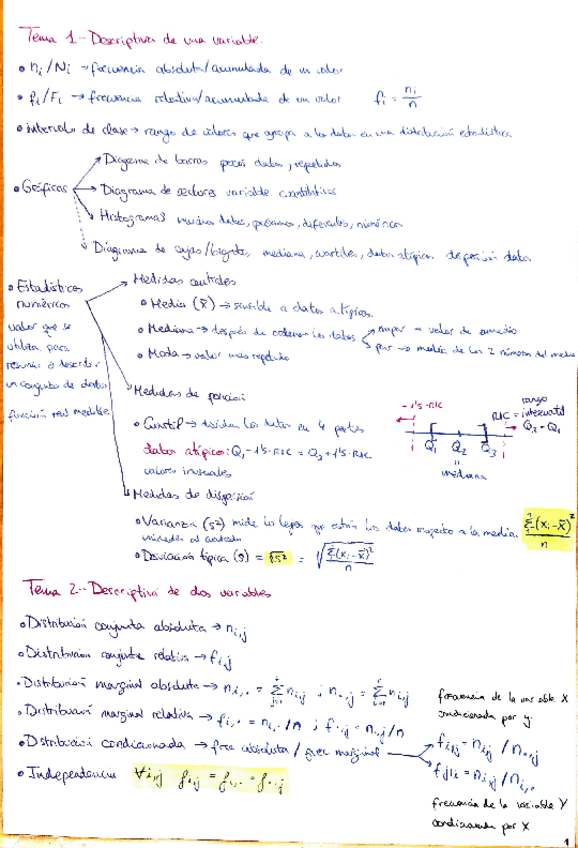 Tema 1 - Descriptiva de una variable.
• ni / Ni → frecuencia absoluta/acumulada de un valor
• fi / Fi → frecuencia relativa/acumulada de un valor fi = ni/n
• intervalo de clase → rango de valores que agrupa a los datos en una distribución estadística
• Gráficas
→ Diagrama de barras pocos datos, repetidos
→ Diagrama de sectores variable cuantitativas
→ Histogramas muchos datos, próximos, diferentes, numéricos
→ Diagrama de cajas/bigotes, mediana, cuartiles, datos atípicos dispersión datos
• Estadísticos numéricos
valor que se utiliza para resumir o describir un conjunto de datos
función real medible
→ Medidas centrales
• Media (x̄) → sensible a datos atípicos
• Mediana → después de ordenar los datos
impar → valor de enmedio
par → media de los 2 números del medio
• Moda → valor más repetido
→ Medidas de posición
• Cuartil → dividen los datos en 4 partes
datos atípicos: Q1 - 1'5·RIC = Q3 + 1'5·RIC
valores inusuales
- 1'5·RIC
rango
RIC = intercuartil
Q3 - Q1
Q1 Q2 Q3
"
mediana
→ Medidas de dispersión
• Varianza (s²) mide lo lejos que están los datos respecto a la media. Σ(xi - x̄)² / n
unidades al cuadrado
• Desviación típica (s) = √s² = √(Σ(xi - x̄)² / n)
Tema 2 - Descriptiva de dos variables
• Distribución conjunta absoluta → ni,j
• Distribución conjunta relativa → fi,j
• Distribución marginal absoluta → ni,. = Σ ni,j ; n.,j = Σ ni,j
• Distribución marginal relativa → fi,. = ni,. / n ; f.,j = n.,j / n
• Distribución condicionada → frec absoluta / frec marginal
frecuencia de la variable X
condicionada por y.
fi|j = ni,j / n.,j
fj|i = ni,j / ni,.
frecuencia de la variable Y
condicionada por X
• Independencia ∀i,j fi,j = fi,. · f.,j
1